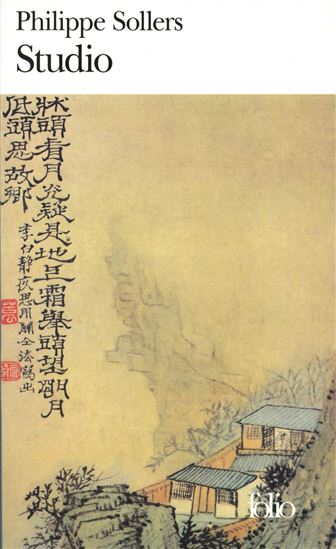 Philippe Sollers
Studio
牀頭看月光疑是地上霜舉頭望朙月
低頭思故鄉
李白靜夜思用關仝法寫出
folio